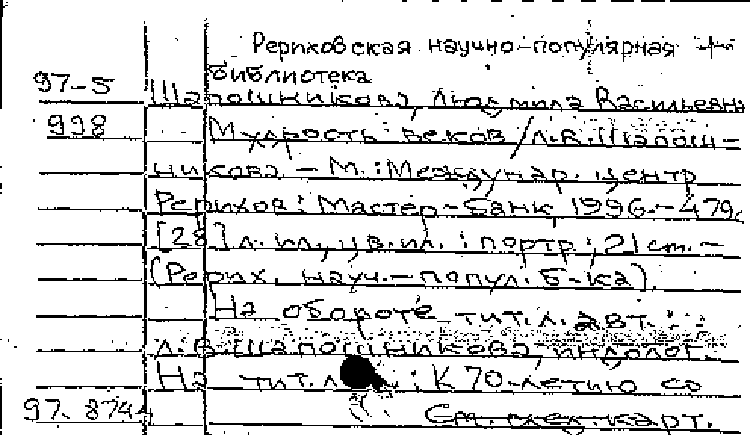 Рериховская научно-популярная
библиотека
97-5 Шапошникова, Людмила Васильевна
998 Мудрость веков / Л.В.Шапош-
никова. – М.: Междунар. центр
Рерихов: Мастер-Банк, 1996.– 479с.
[28] л. ил., цв. ил. : портр.; 21 см. –
(Рерих. науч.- попул. б-ка).
На обороте тит.л. авт.:
Л.В.Шапошникова, индолог.
На тит.л : К 70-летию со
97. 8744 См. след. карт.